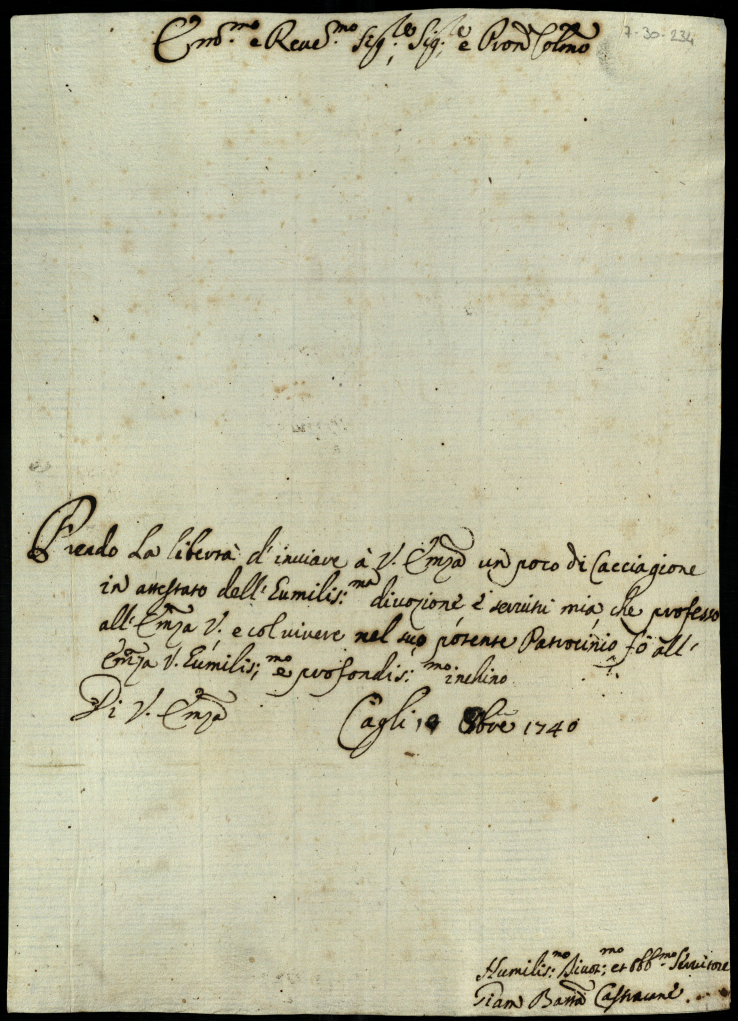 Em.mo e Reve.mo Sig.re Sig.re e Pron Colmo
7-30-234
Prendo La libertà d'inviare à V. Emza un poco di Cacciagione
in attestato dell'Eumilis:ma divozione è servitù mia, che professo
all'Emza V., e col vivere nel suo potente Patrocinio fò all'
Emza V. Eumilis:mo e profondis:mo inchino
Di V. Emza
Cagli 19 8bre 1740
Humilis:mo Divot:mo et obb:mo Servitore
Giam Batta Castracane